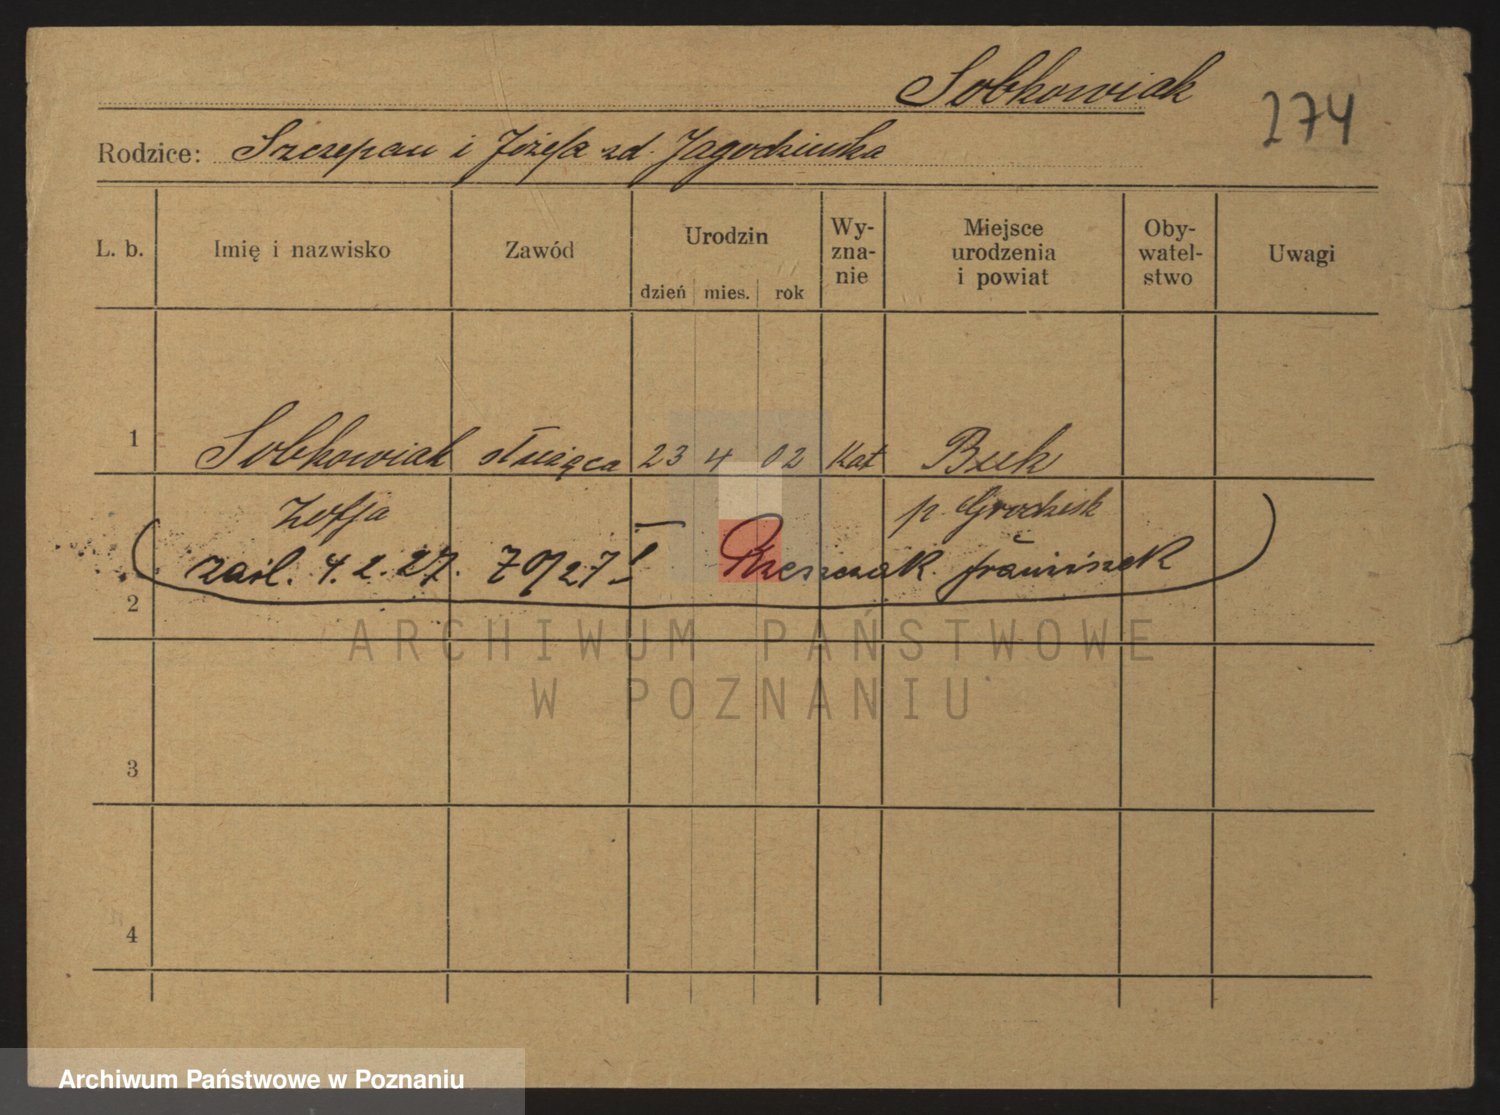 Sobkowiak
274
Rodzice: Szczepan i Józefa zd. Jagodzinska
L. b. Imię i nazwisko Zawód Urodzin Wy-zna-nie Miejsce urodzenia i powiat Oby-watel-stwo Uwagi
dzień mies. rok
1 Sobkowiak służąca 23 4 02 Kat Buk
Zofja p. Grodzisk
zaśl. 4.2.27. 70/27 I Rzeszczak franciszek
2
ARCHIWUM PAŃSTWOWE
W POZNANIU
3
4
Archiwum Państwowe w Poznaniu